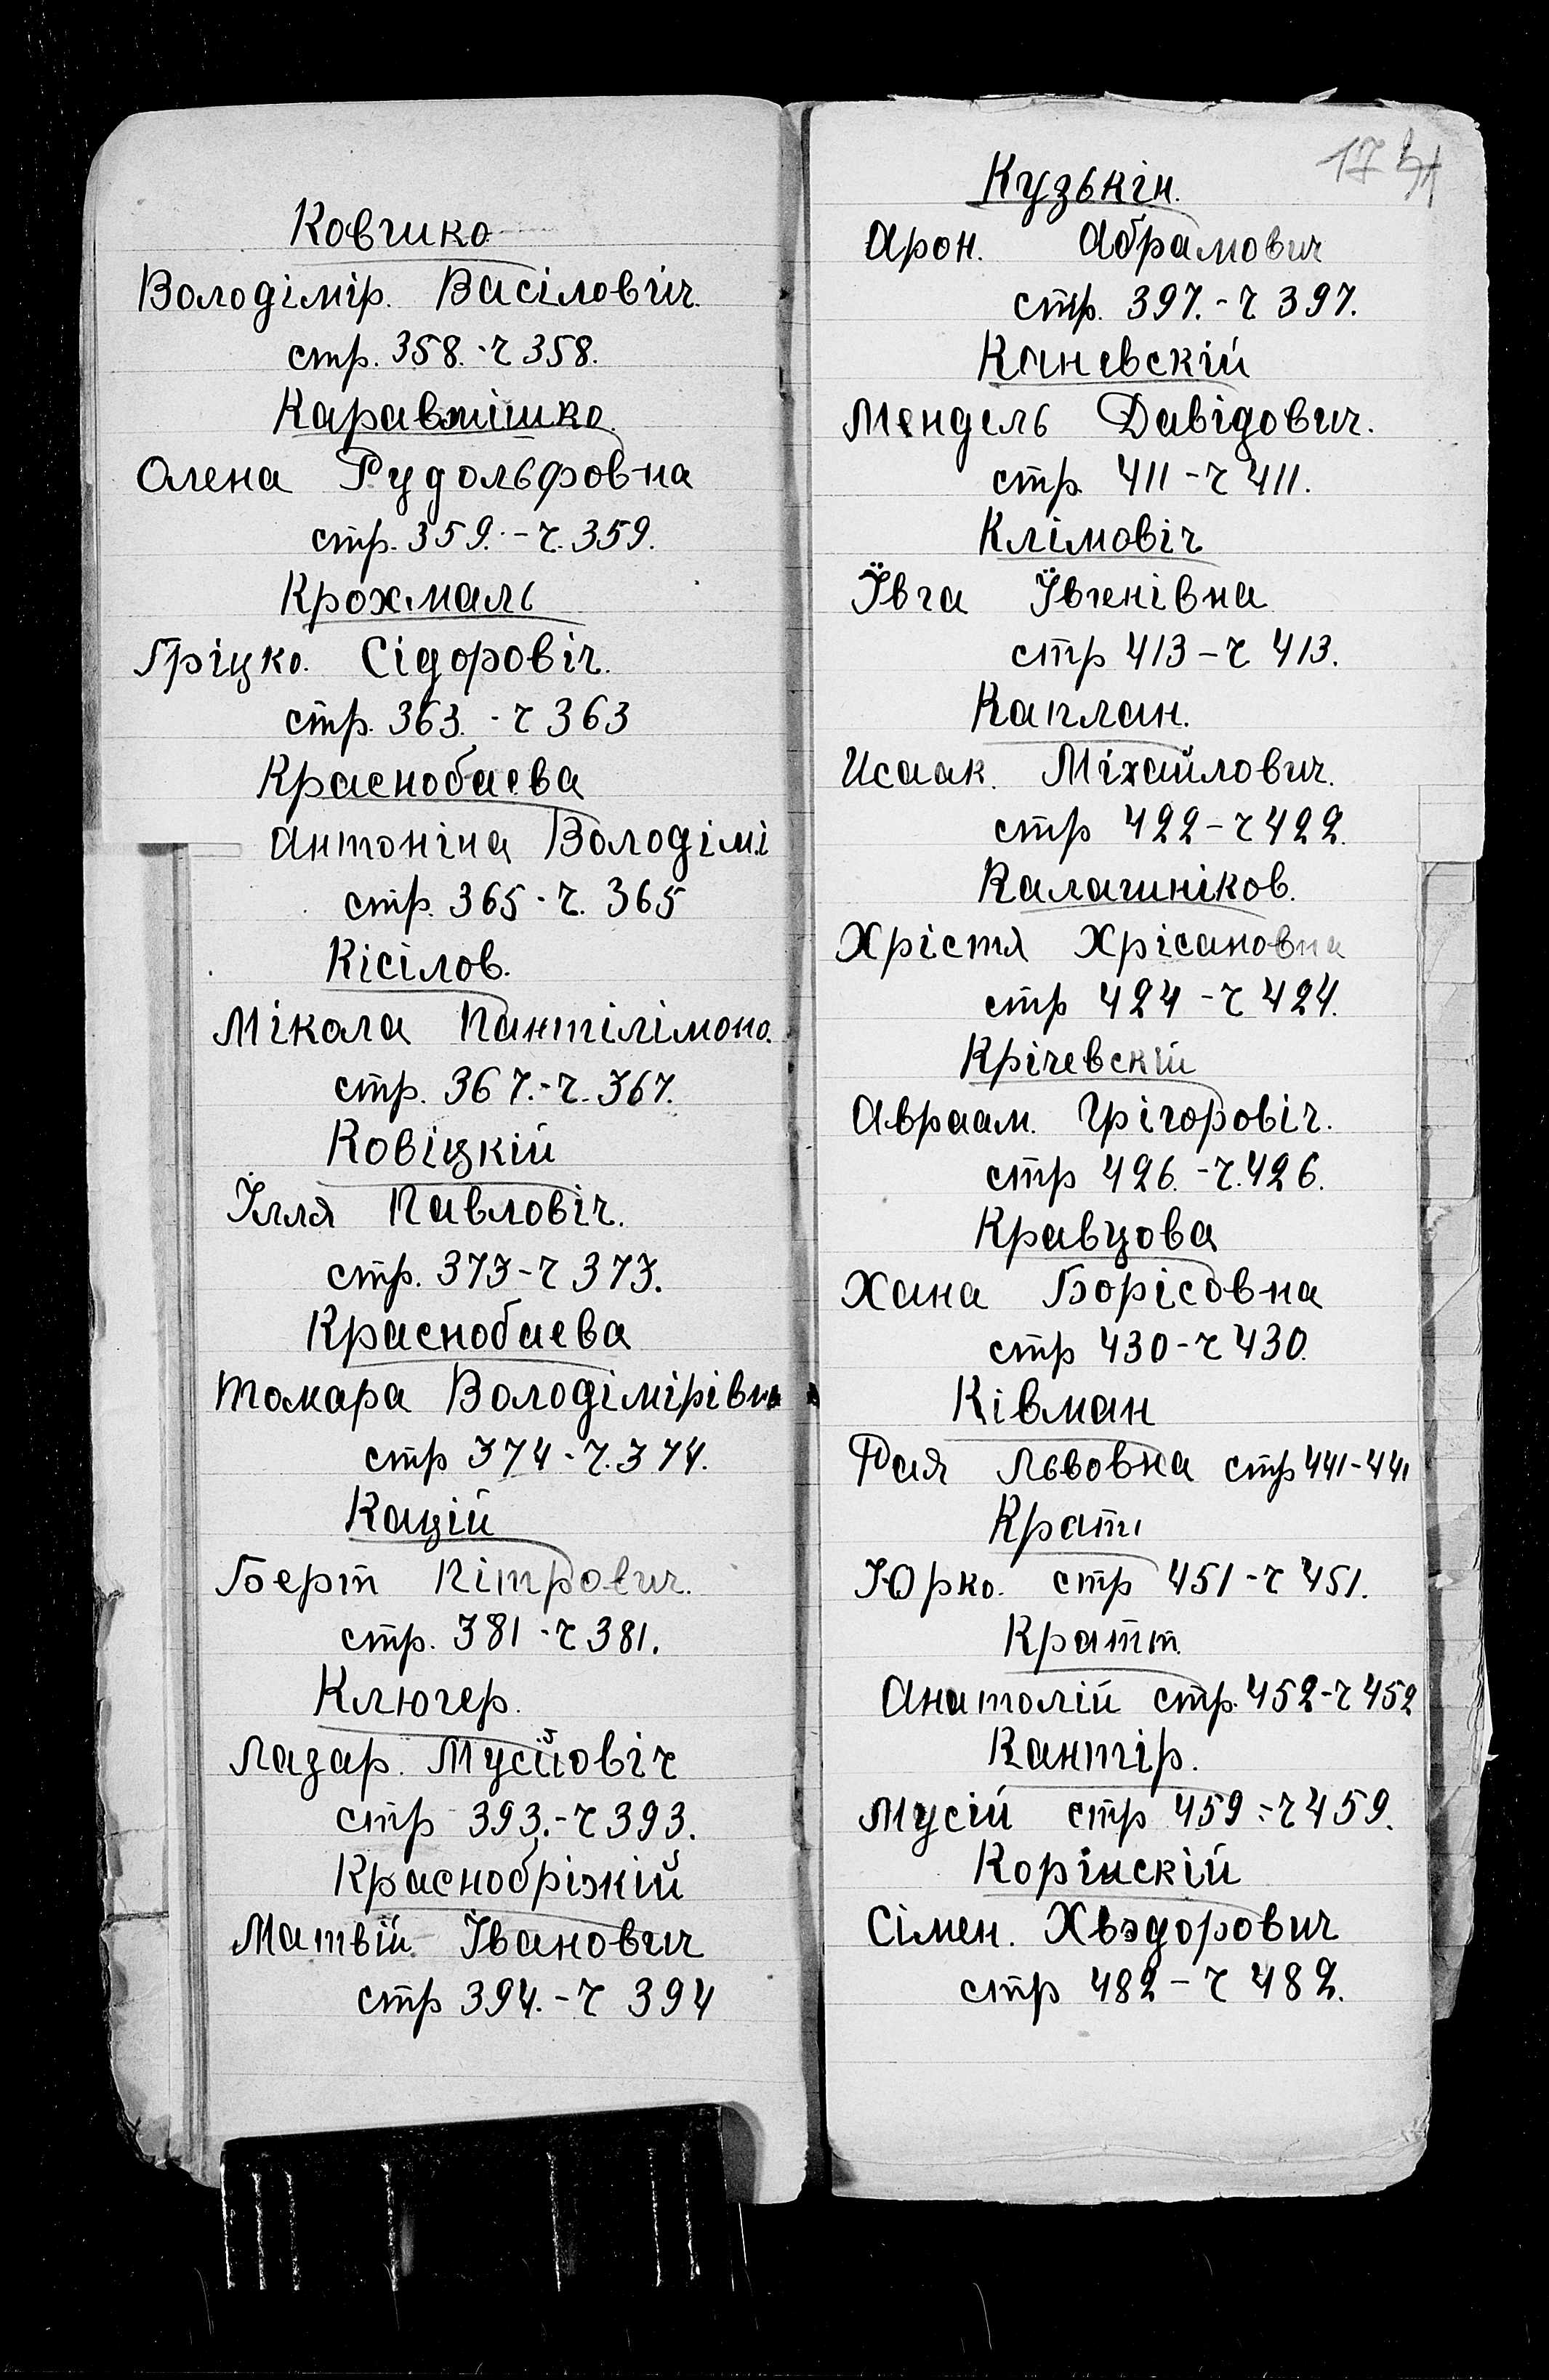 Ковчико
Володімір. Васіловіч.
стр. 358.-ч 358.
Каравмішко.
Олена Рудольфовна
стр. 359.-ч. 359.
Крохмаль
Гріцко. Сідоровіч.
стр. 363.-ч 363
Краснобаева
Антоніна Володімі
стр. 365-ч. 365
Кісілов.
Мікола Пантілімоно.
стр. 367.-ч. 367.
Ковіцкій
Ілля Павловіч.
стр. 373-ч 373.
Краснобаева
Томара Володімірівна
стр 374-ч. 374.
Кацій
Берт Пітрович.
стр. 381-ч 381.
Ключер.
Лазар. Мусійовіч
стр 393.-ч 393.
Краснобрізкій
Матвій Івановичч
стр 394.-ч 394
17
Кузькін.
Арон. Абрамович
стр. 397.-ч 397.
Каневскій
Мендель Давідович.
стр. 411-ч 411.
Клімовіч
Ївга Ївгенівна
стр 413-ч 413.
Каплан.
Исаак. Міхайлович.
стр 422-ч 422.
Калашніков.
Хрістя Хрісановна
стр 424-ч 424.
Крічевскій
Авраам. Грігоровіч.
стр 426.-ч. 426.
Кравцова
Хана Борісовна
стр 430-ч 430.
Ківман
Рая Львовна стр 441-441
Кратт
Юрко. стр 451-ч 451.
Кратт.
Анатолій стр. 452-ч 452
Кантір.
Мусій стр 459-ч 459.
Корінскій
Сімен. Хвэдорович
стр 482-ч 482.